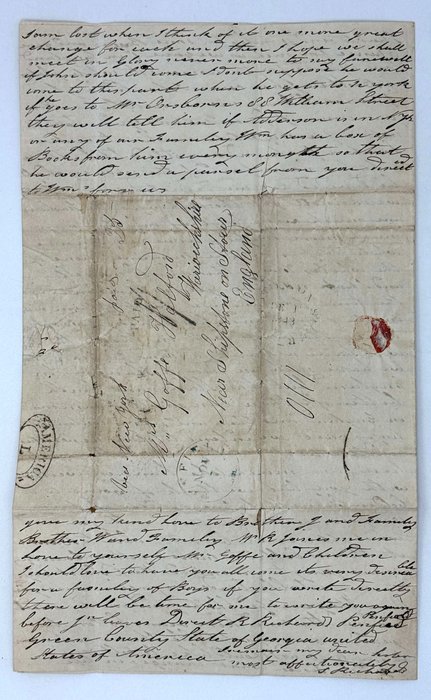 I am lost when I think of it one more great
change for each and then I hope we shall
meet in Glory never more to say farewell
if John should come I dont suppose he would
come to this part when he gets to N york
if he goes to Mr Orsbornes 88 William Street
they will tell him if Alderson is in N.Y.
or any of our Family Wm has a box of
Books from him every month so that
he would send a parsel from you direct
to Wm's for us
Via New York
paid
Mrs Goffe Walford
Warwickshire
Near Shipstone on Stour
England
AMERICA
L
give my kind love to Brother J and Family
Brother W and Family Mr R James me in
love to yourself Mr Goffe and Children
I should love to have you all come its very
for a family of Boys if you write directly
there will be time for me to write you again
before Jn leaves Direct R Richards Penfield
Green County State of Georgia united
States of America
I remain my Dear
most affectionately
S Richards